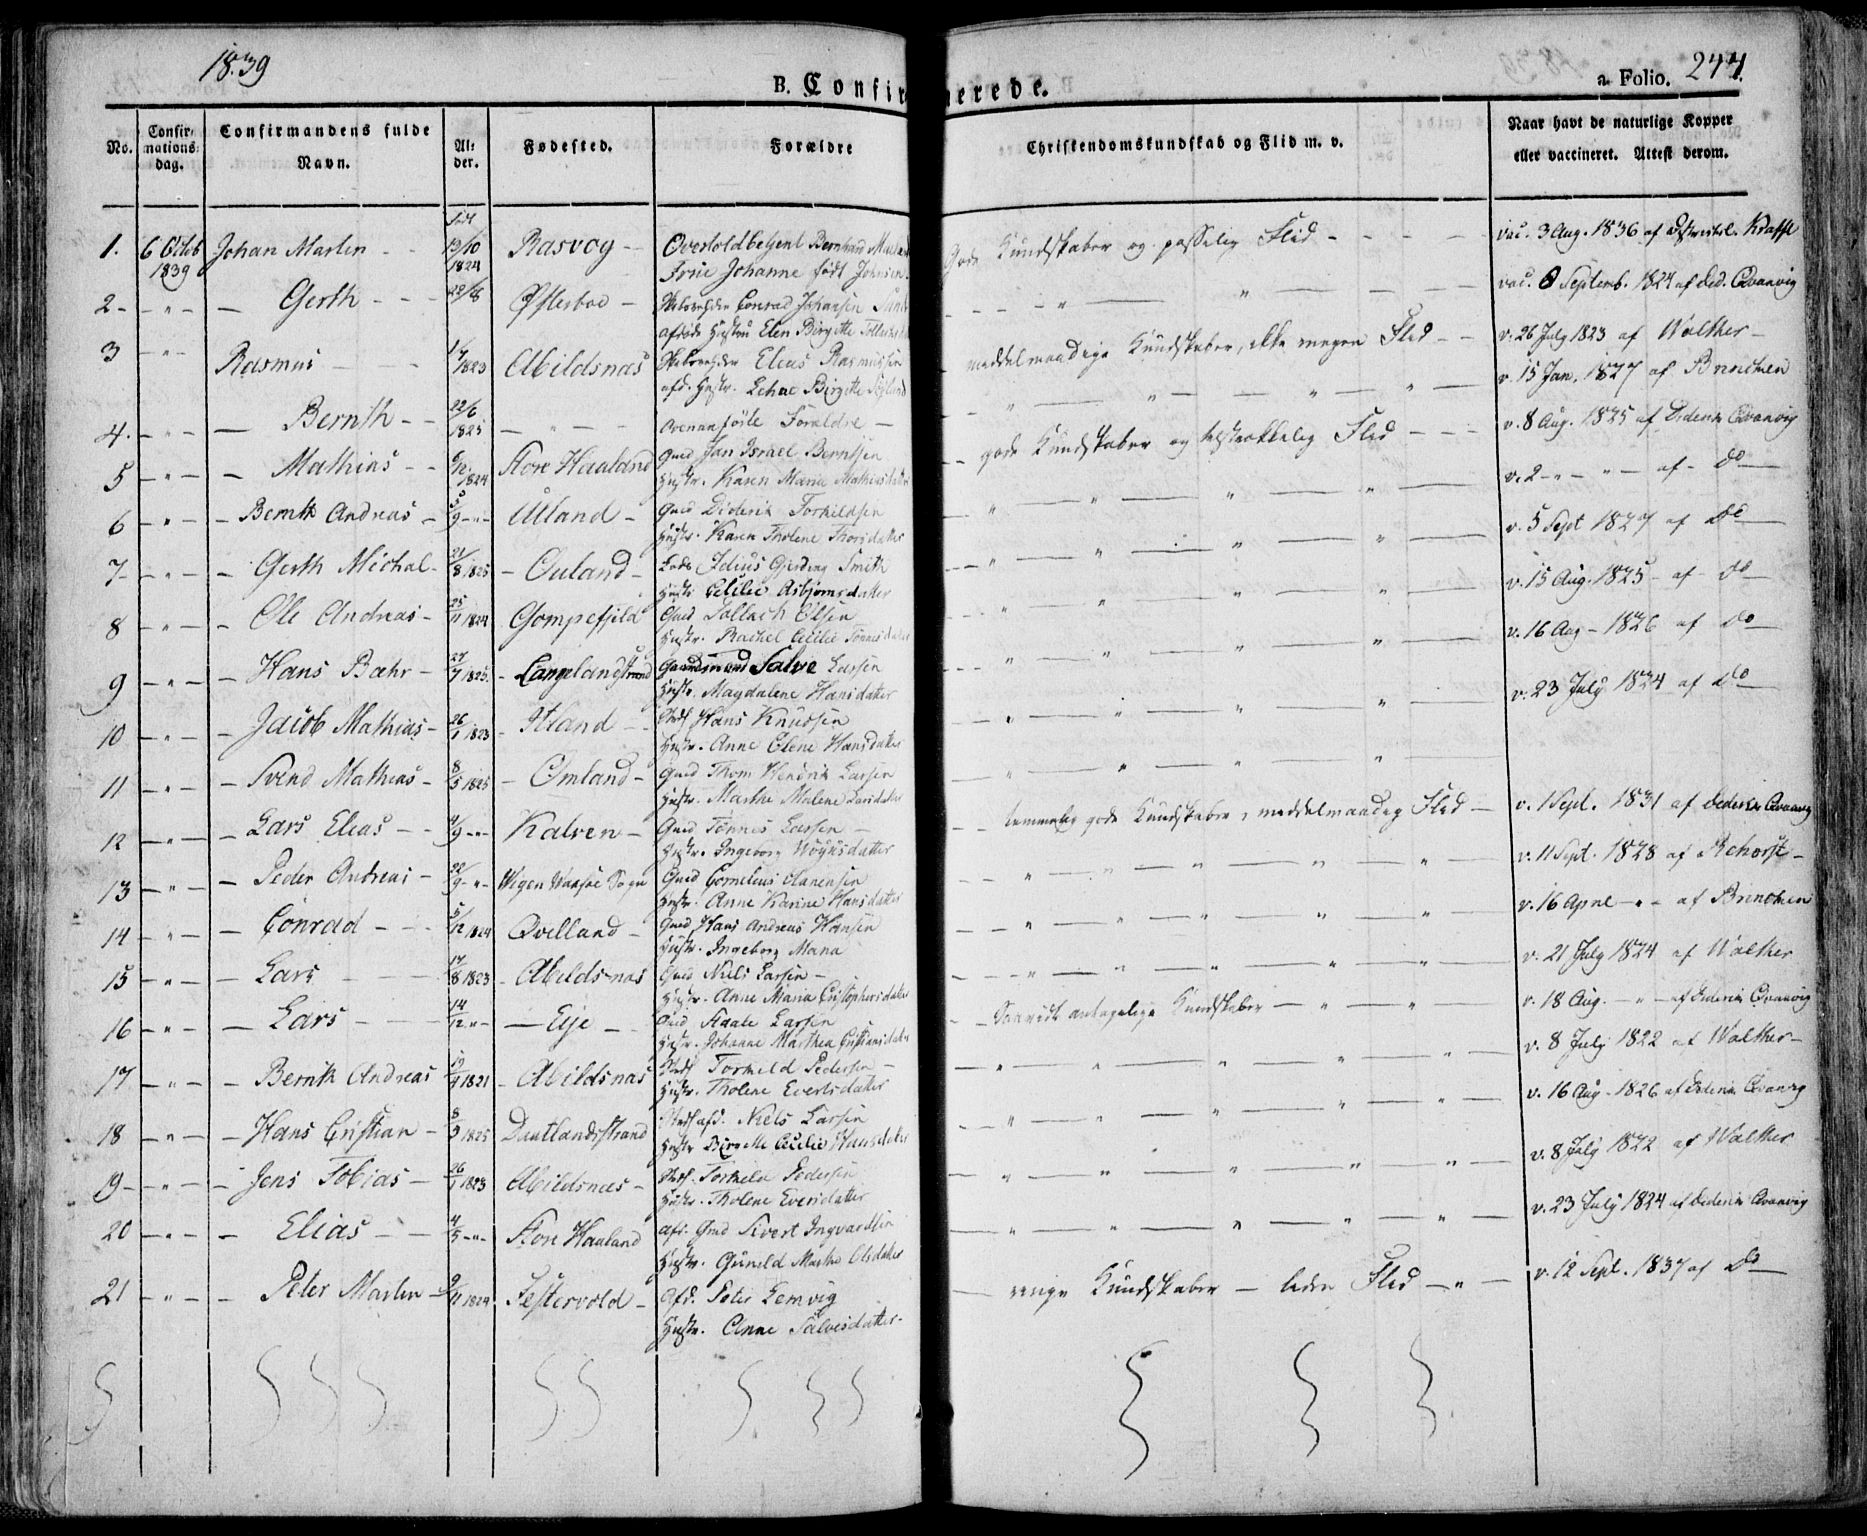 1839
B. Confirmerede.
a Folio. 244.
No.
Confirmationsdag.
Confirmandens fulde Navn.
Alder.
Fødested.
Forældre
Christendomskundskab og Flid m. v.
Naar havt de naturlige Kopper eller vaccineret. Attest derom.
1. 6 Octob 1839 Johan Martin - født 13/10 1824 Rasvog - Overtoldbetjent Bernhard Fru Johanne født Johnsen Gode Kundskaber og passelig Flid - - - - vac. 3 Aug. 1836 af Krafft
2 - " - — Gerth - - - 22/8 Østerboe - Conrad Johansen afdøde Hustru Elen Birgitte - - - " — " — — — vac. 6 Septemb. 1824 af Qvanvig
3 - " - Rasmus - - 1823 Abildsnæs Elias Rasmussen afd. Hustr. Lehae Birgitte middelmaadige Kundskaber, ikke megen Flid - - v. 26 July 1823 af Walther -
4. - " - — Bernth - - 22/6 1825 — " — ovenanførte Forældre — " — " — " — " — v. 15 Jan. 1827 af Brinchen
5 - " - — Mathias - - 6/12 1824 Store Haaland Gmd Jan Israel Berntsen Hustr. Karen Maria gode Kundskaber og Flid - - - v. 8 Aug. 1825 af Qvanvig
6 - " - — Bernth Andreas - 5/9 - " - Ulland - Gmd Diderik Torkildsen Hustr. Karen Tholene Thorsdatter — " — " — " — " — v. 2 - " - " — af - do —
7 - " - — Gerth Michal - 21/8 1825 - Ouland - Gjerding Smith Hustr Cecilie Asbjørnsdatter — " — " — " — " — v. 5 Sept 1827 af do —
8 - " - — Ole Andreas - 25/11 1824 Gompefjeld Gmd Tollach Olsen Hustr. Rachel Cecilie Tønnesdatter — " — " — " — " — v. 15 Aug. 1825 - af - do —
9 - " - — Hans Bahr - 27/7 1825. - Langelandstrand Salve Larsen Hustr. Magdalene Hansdatter — " — " — " — " — v. 16 Aug - 1826 af do —
10 - " - — Jacob Mathias - 26/1 1823 - Itland - - Hans Knudsen Hustr. Anne Elene Hansdatter — " — " — " — " — v. 23 July 1824 af do —
11 - " - — Svend Mathias - 8/5 1825 - Omland - Gmd Thom Hendrik Larsen Hustr. Marthe Malene Larsdatter — " — " — " — " —
12 - " - — Lars Elias - - 4/9 - " - Kalven - Gmd Tønnes Larsen — Hustr. Ingeborg — — temmelig gode Kundskaber, middelmaadig Flid — v. 1 Sept. 1831 af Qvanvig
13 - " - — Peder Andreas - 22/9 - " - Sogn Gmd Cornelius Hanensen Hustr. Anne Karine Hansdatter — " — " — " — " — v. 11 Sept. 1828 af Rehorst -
14 - " - — Conrad - - 5/12 1824 Qvelland - Gmd Hans Andreas Hansen Hustr. Ingeborg Maria — " — " — " — " — v. 16 April - " - af Brinchen
15 - " - — Lars - - 17/8 1823 - Abildsnæs Gmd Niels Larsen — Hustr. Anne Maria Cristophersdatter — " — " — " — " — v. 21 July 1824 af Walther
16 - " - — Lars - - 14/12 - " - — Eje - - Gmd Staale Larsen Hustr. Johanne Marthea Cristiansdatter — Saavidt antagelige Kundskaber — " — " — v. 18 Aug. - " - af Qvanvig
17 - " - — Bernth Andreas 1821 - Abildsnæs Torkild Pedersen - Hustr. Tholene Evertsdatter — " — " — " — " — v. 8 July 1822 af Walther -
18 - " - — Hans Cristian - 8/3 1825 Dautlandsstrand afd. Niels Larsen Hustr Birgitte Cecilie Hansdatter — " — " — " — " — v. 16 Aug - 1826 af Qvanvig
19 - " - — Jens Tobias - 26/1 1823 Abildsnæs - Torkild Pedersen Hustr. Tholene Evertsdatter — " — " — " — " — v. 8 July 1822 af Walther
20 - " - — Elias - - 4/5 - " - Store Haaland afd. Gmd Sivert Ingvardsen Hustr. Gunild Marthe Olsdatter — " — " — " — " — v. 23 July 1824 af Qvanvig
21 - " - — Peter Martin - 9/11 1824. Festervold - Afd. Peter Lemvig Hustr. Anne Salvesdatter - — ringe Kundskaber — liden Flid - " - v. 12 Sept. 1837 af do —